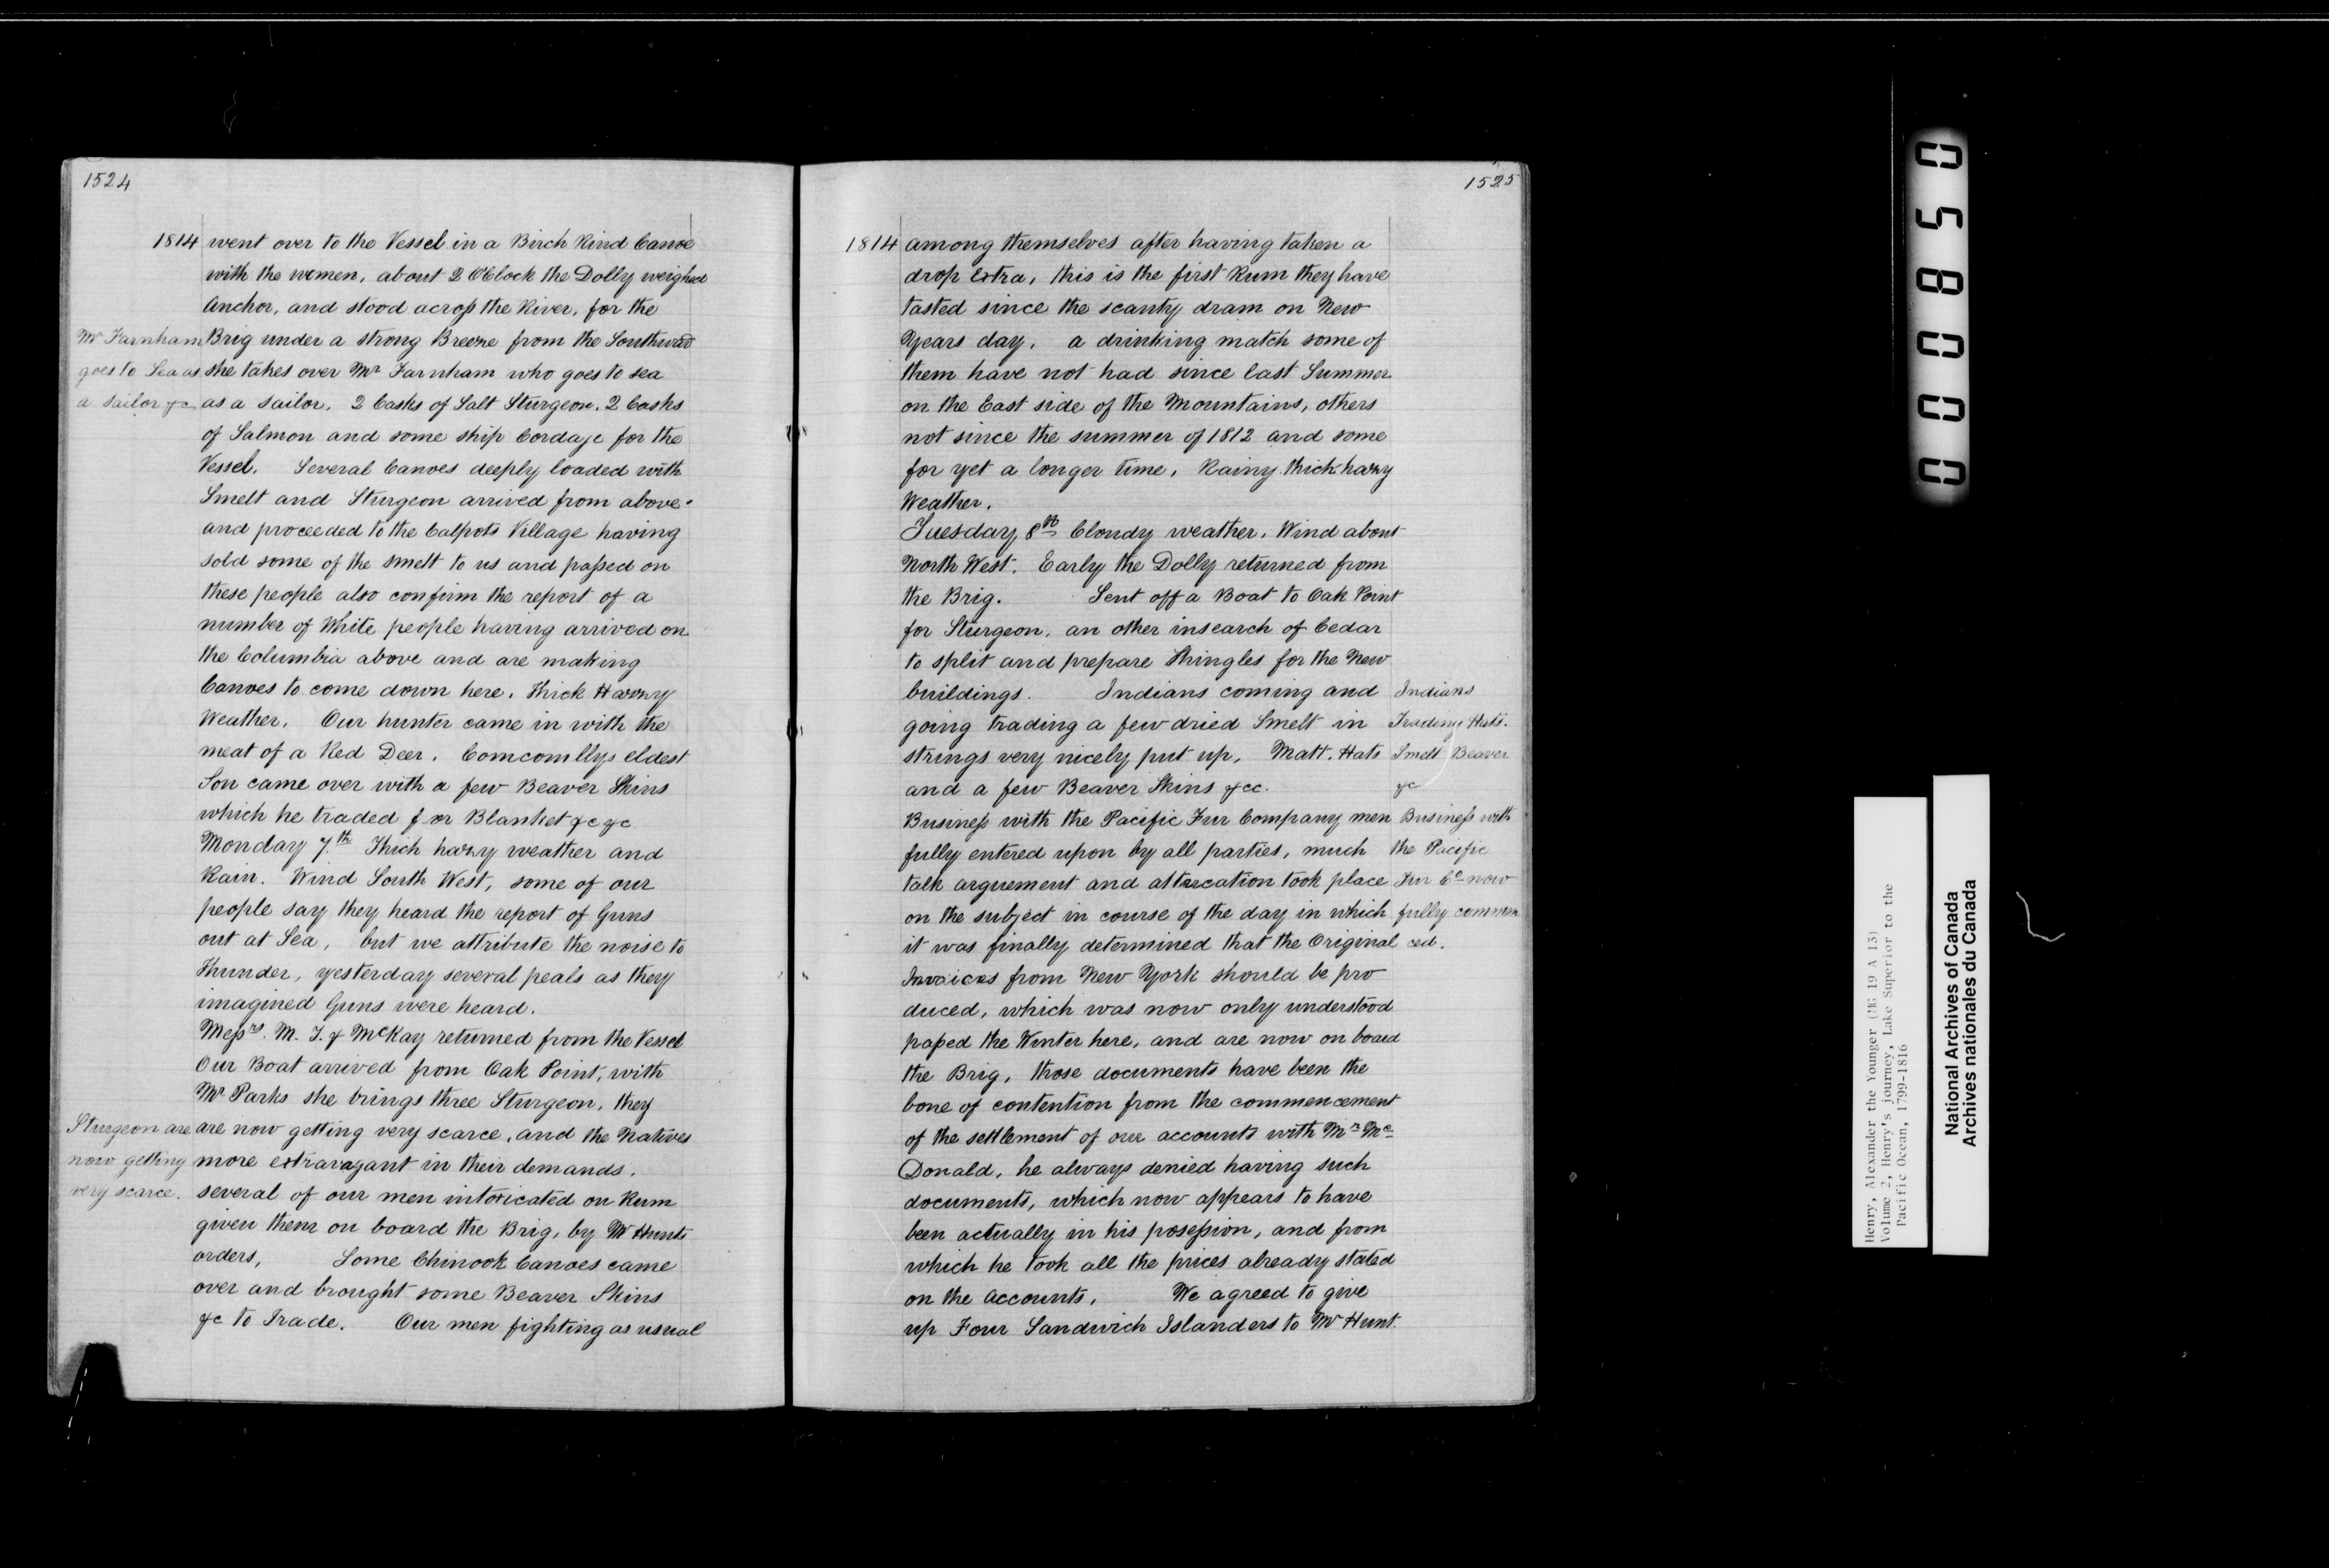 1524
1814 went over to the Vessel in a Birch Rind Canoe
with the women, about 2 O'Clock the Dolly weighed
Anchor, and stood across the River, for the
Mr Farnham Brig under a strong Breeze from the Southward
goes to Sea as she takes over Mr Farnham who goes to sea
a Sailor &c as a Sailor. 2 Casks of Salt Sturgeon. 2 Casks
of Salmon and some ship Cordage for the
Vessel. Several Canoes deeply loaded with
Smelt and Sturgeon arrived from above
and proceeded to the Calpots Village having
sold some of the smelt to us and passed on
these people also confirm the report of a
number of White people having arrived on
the Columbia above and are making
Canoes to come down here. Thick Hazzy
Weather. Our hunter came in with the
meat of a Red Deer. Comcomllys eldest
Son came over with a few Beaver Skins
which he traded for Blanket &c &c
Monday 7th Thick hazzy weather and
Rain. Wind South West, some of our
people say they heard the report of Guns
out at Sea, but we attribute the noise to
Thunder, yesterday several peals as they
imagined Guns were heard.
Messrs. M. T. & McKay returned from the Vessel
Our Boat arrived from Oak Point, with
Mr Parks she brings three Sturgeon, they
Sturgeon are are now getting very scarce, and the Natives
now getting more extravagant in their demands.
very scarce. several of our men intoxicated on Rum
given them on board the Brig, by Mr Hunts
orders, Some Chinook Canoes came
over and brought some Beaver Skins
&c to Trade. Our men fighting as usual
1525
1814 among themselves after having taken a
drop Extra, this is the first Rum they have
tasted since the scanty dram on New
Years day. a drinking match some of
them have not had since last Summer
on the East side of the Mountains, others
not since the summer of 1812 and some
for yet a longer time. Rainy thick hazzy
Weather.
Tuesday 8th Cloudy weather. Wind about
North West. Early the Dolly returned from
the Brig. Sent off a Boat to Oak Point
for Sturgeon. an other insearch of Cedar
to split and prepare Shingles for the New
buildings. Indians coming and Indians
going trading a few dried Smelt in Trading Hats.
strings very nicely put up, Matt. Hats Smelt Beaver
and a few Beaver Skins &cc. &c
Business with the Pacific Fur Company men Business with
fully entered upon by all parties, much the Pacific
talk arguement and altercation took place Fur Co now
on the subject in course of the day in which fully commen
it was finally determined that the Original ced.
Invoices from New York should be pro
duced, which was now only understood
passed the Winter here, and are now on board
the Brig, those documents have been the
bone of contention from the commencement
of the settlement of our accounts with Mr Mc
Donald, he always denied having such
documents, which now appears to have
been actually in his possession, and from
which he took all the prices already stated
on the accounts. We agreed to give
up Four Sandwich Islanders to Mr Hunt.
000850
Henry, Alexander the Younger (MG 19 A 13)
Volume 2, Henry's journey, Lake Superior to the
Pacific Ocean, 1799-1816
National Archives of Canada
Archives nationales du Canada